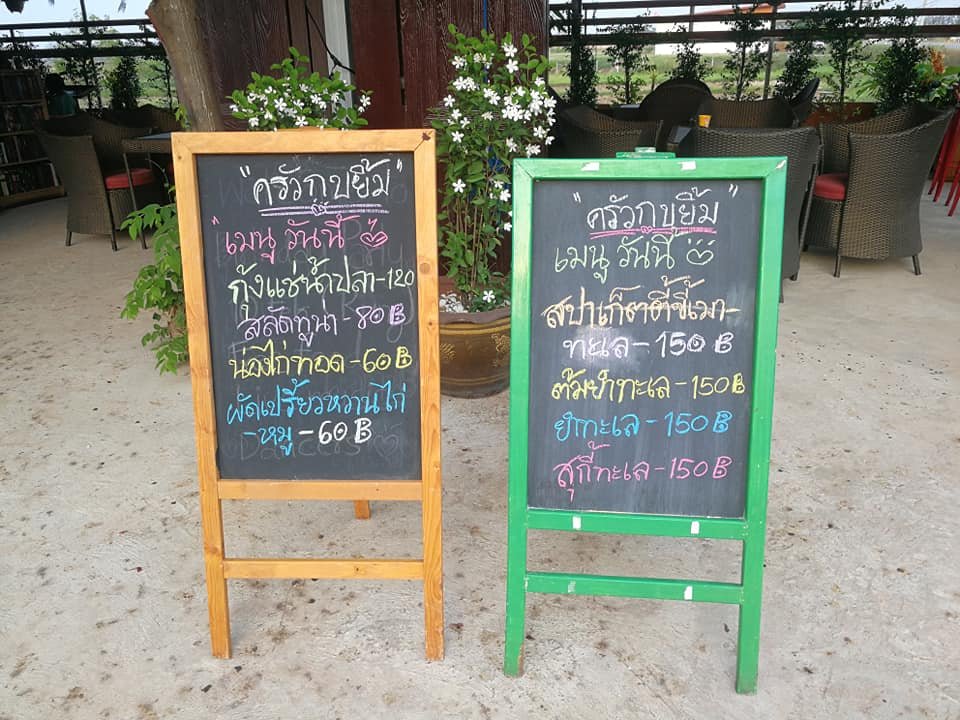 "ครัวกบยิ้ม"
"เมนู วันนี้
กุ้งแช่น้ำปลา-120
สลัดทูน่า-80฿
น่องไก่ทอด-60฿
ผัดเปรี้ยวหวานไก่
-หมู-60฿
"ครัวกบยิ้ม"
เมนู วันนี้
สปาเก็ตตี้ขี้เมา-
ทะเล-150฿
ต้มยำทะเล-150฿
ยำทะเล-150฿
สุกี้ทะเล-150฿